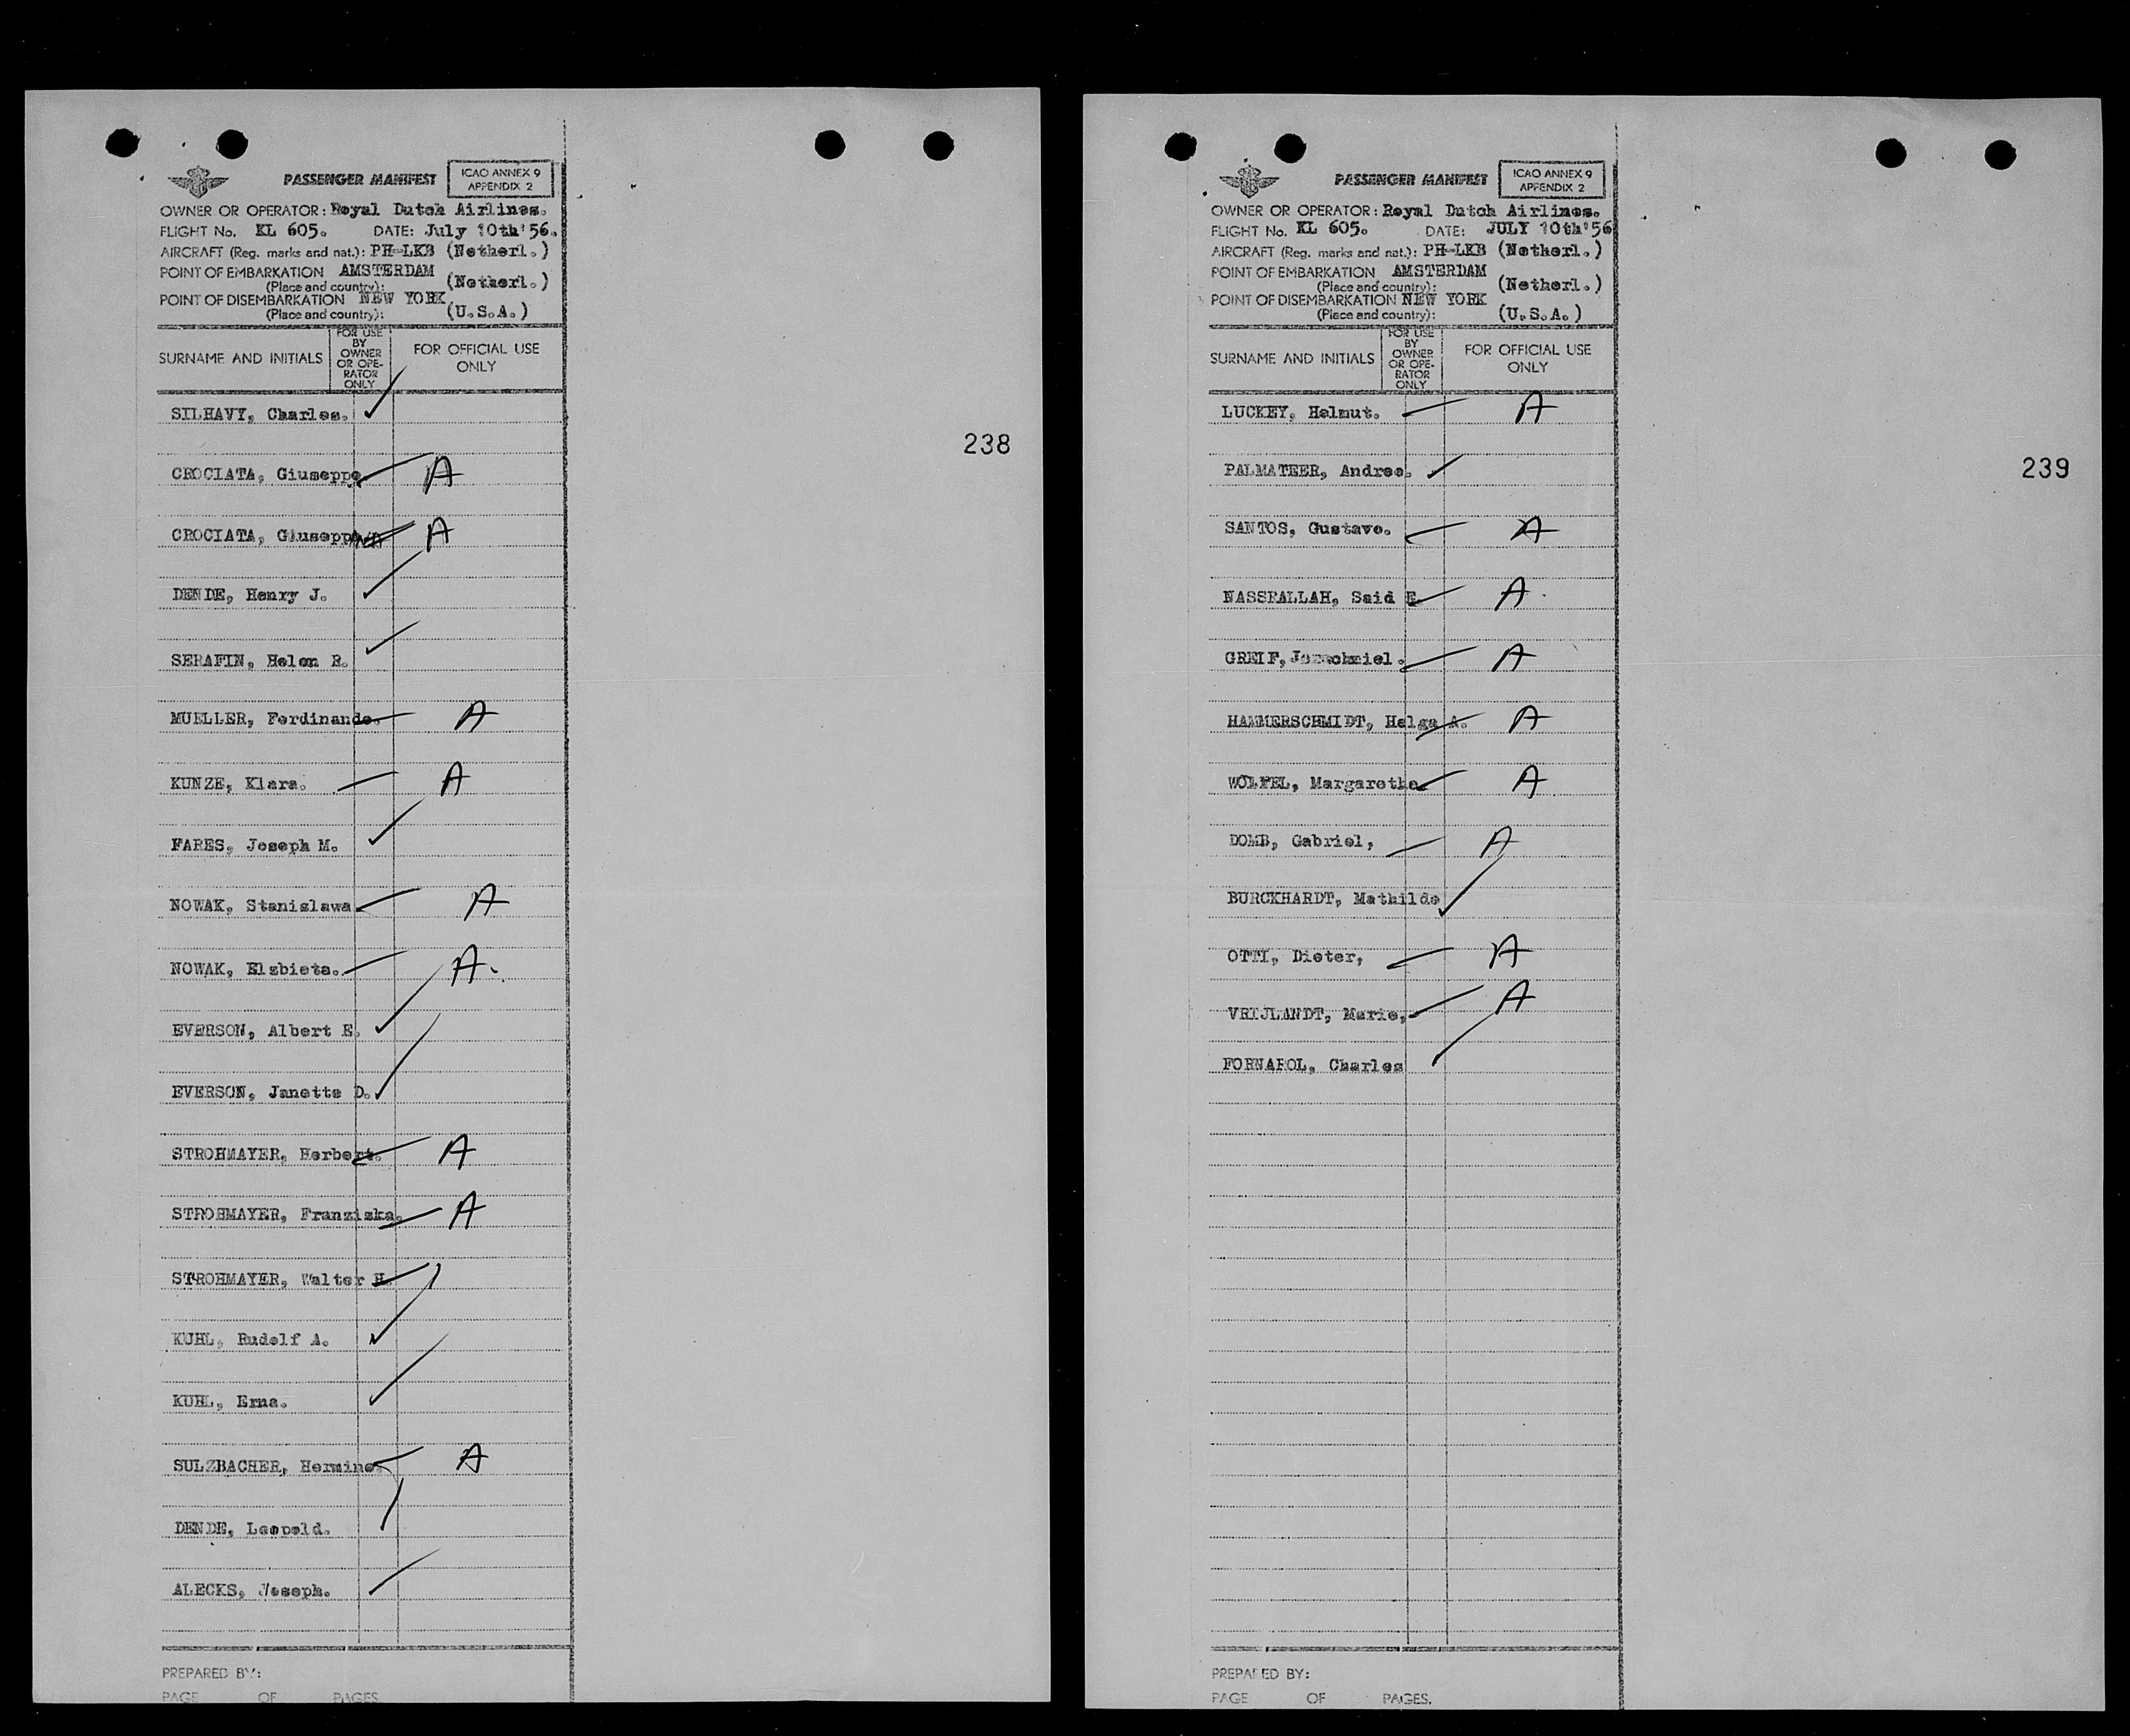 PASSENGER MANIFEST
ICAO ANNEX 9
APPENDIX 2
OWNER OR OPERATOR: Royal Dutch Airlines.
FLIGHT No. KL 605. DATE: July 10th'56.
AIRCRAFT (Reg. marks and nat.): PH-LKB (Netherl.)
POINT OF EMBARKATION AMSTERDAM
(Place and country): (Netherl.)
POINT OF DISEMBARKATION NEW YORK
(Place and country): (U.S.A.)
SURNAME AND INITIALS
FOR USE
BY
OWNER
OR OPE-
RATOR
ONLY
FOR OFFICIAL USE
ONLY
SILHAVY, Charles.
238
CROCIATA, Giuseppe A
CROCIATA, Giuseppa A
DENDE, Henry J.
SERAFIN, Helen R.
MUELLER, Ferdinande. A
KUNZE, Klara. A
FARES, Joseph M.
NOWAK, Stanislawa A
NOWAK, Elzbieta. A
EVERSON, Albert E.
EVERSON, Janette D.
STROHMAYER, Herbert. A
STROHMAYER, Franziska. A
STROHMAYER, Walter H.
KUHL, Rudolf A.
KUHL, Erna.
SULZBACHER, Hermine. A
DENDE, Leopold.
ALECKS, Joseph.
PREPARED BY:
PAGE OF PAGES.
PASSENGER MANIFEST
ICAO ANNEX 9
APPENDIX 2
OWNER OR OPERATOR: Royal Dutch Airlines.
FLIGHT No. KL 605. DATE: JULY 10th'56
AIRCRAFT (Reg. marks and nat.): PH-LKB (Netherl.)
POINT OF EMBARKATION AMSTERDAM
(Place and country): (Netherl.)
POINT OF DISEMBARKATION NEW YORK
(Place and country): (U.S.A.)
SURNAME AND INITIALS
FOR USE
BY
OWNER
OR OPE-
RATOR
ONLY
FOR OFFICIAL USE
ONLY
LUCKEY, Helmut. A
239
PALMATEER, Andree.
SANTOS, Gustavo. A
NASSRALLAH, Said E. A
GREIF, A
HAMMERSCHMIDT, Helga A. A
WÖLFEL, Margarethe A
DOMB, Gabriel, A
BURCKHARDT, Mathilde
OTTI, Dieter, A
VRIJLANDT, Marie, A
FORNAROL, Charles
PREPARED BY:
PAGE OF PAGES.